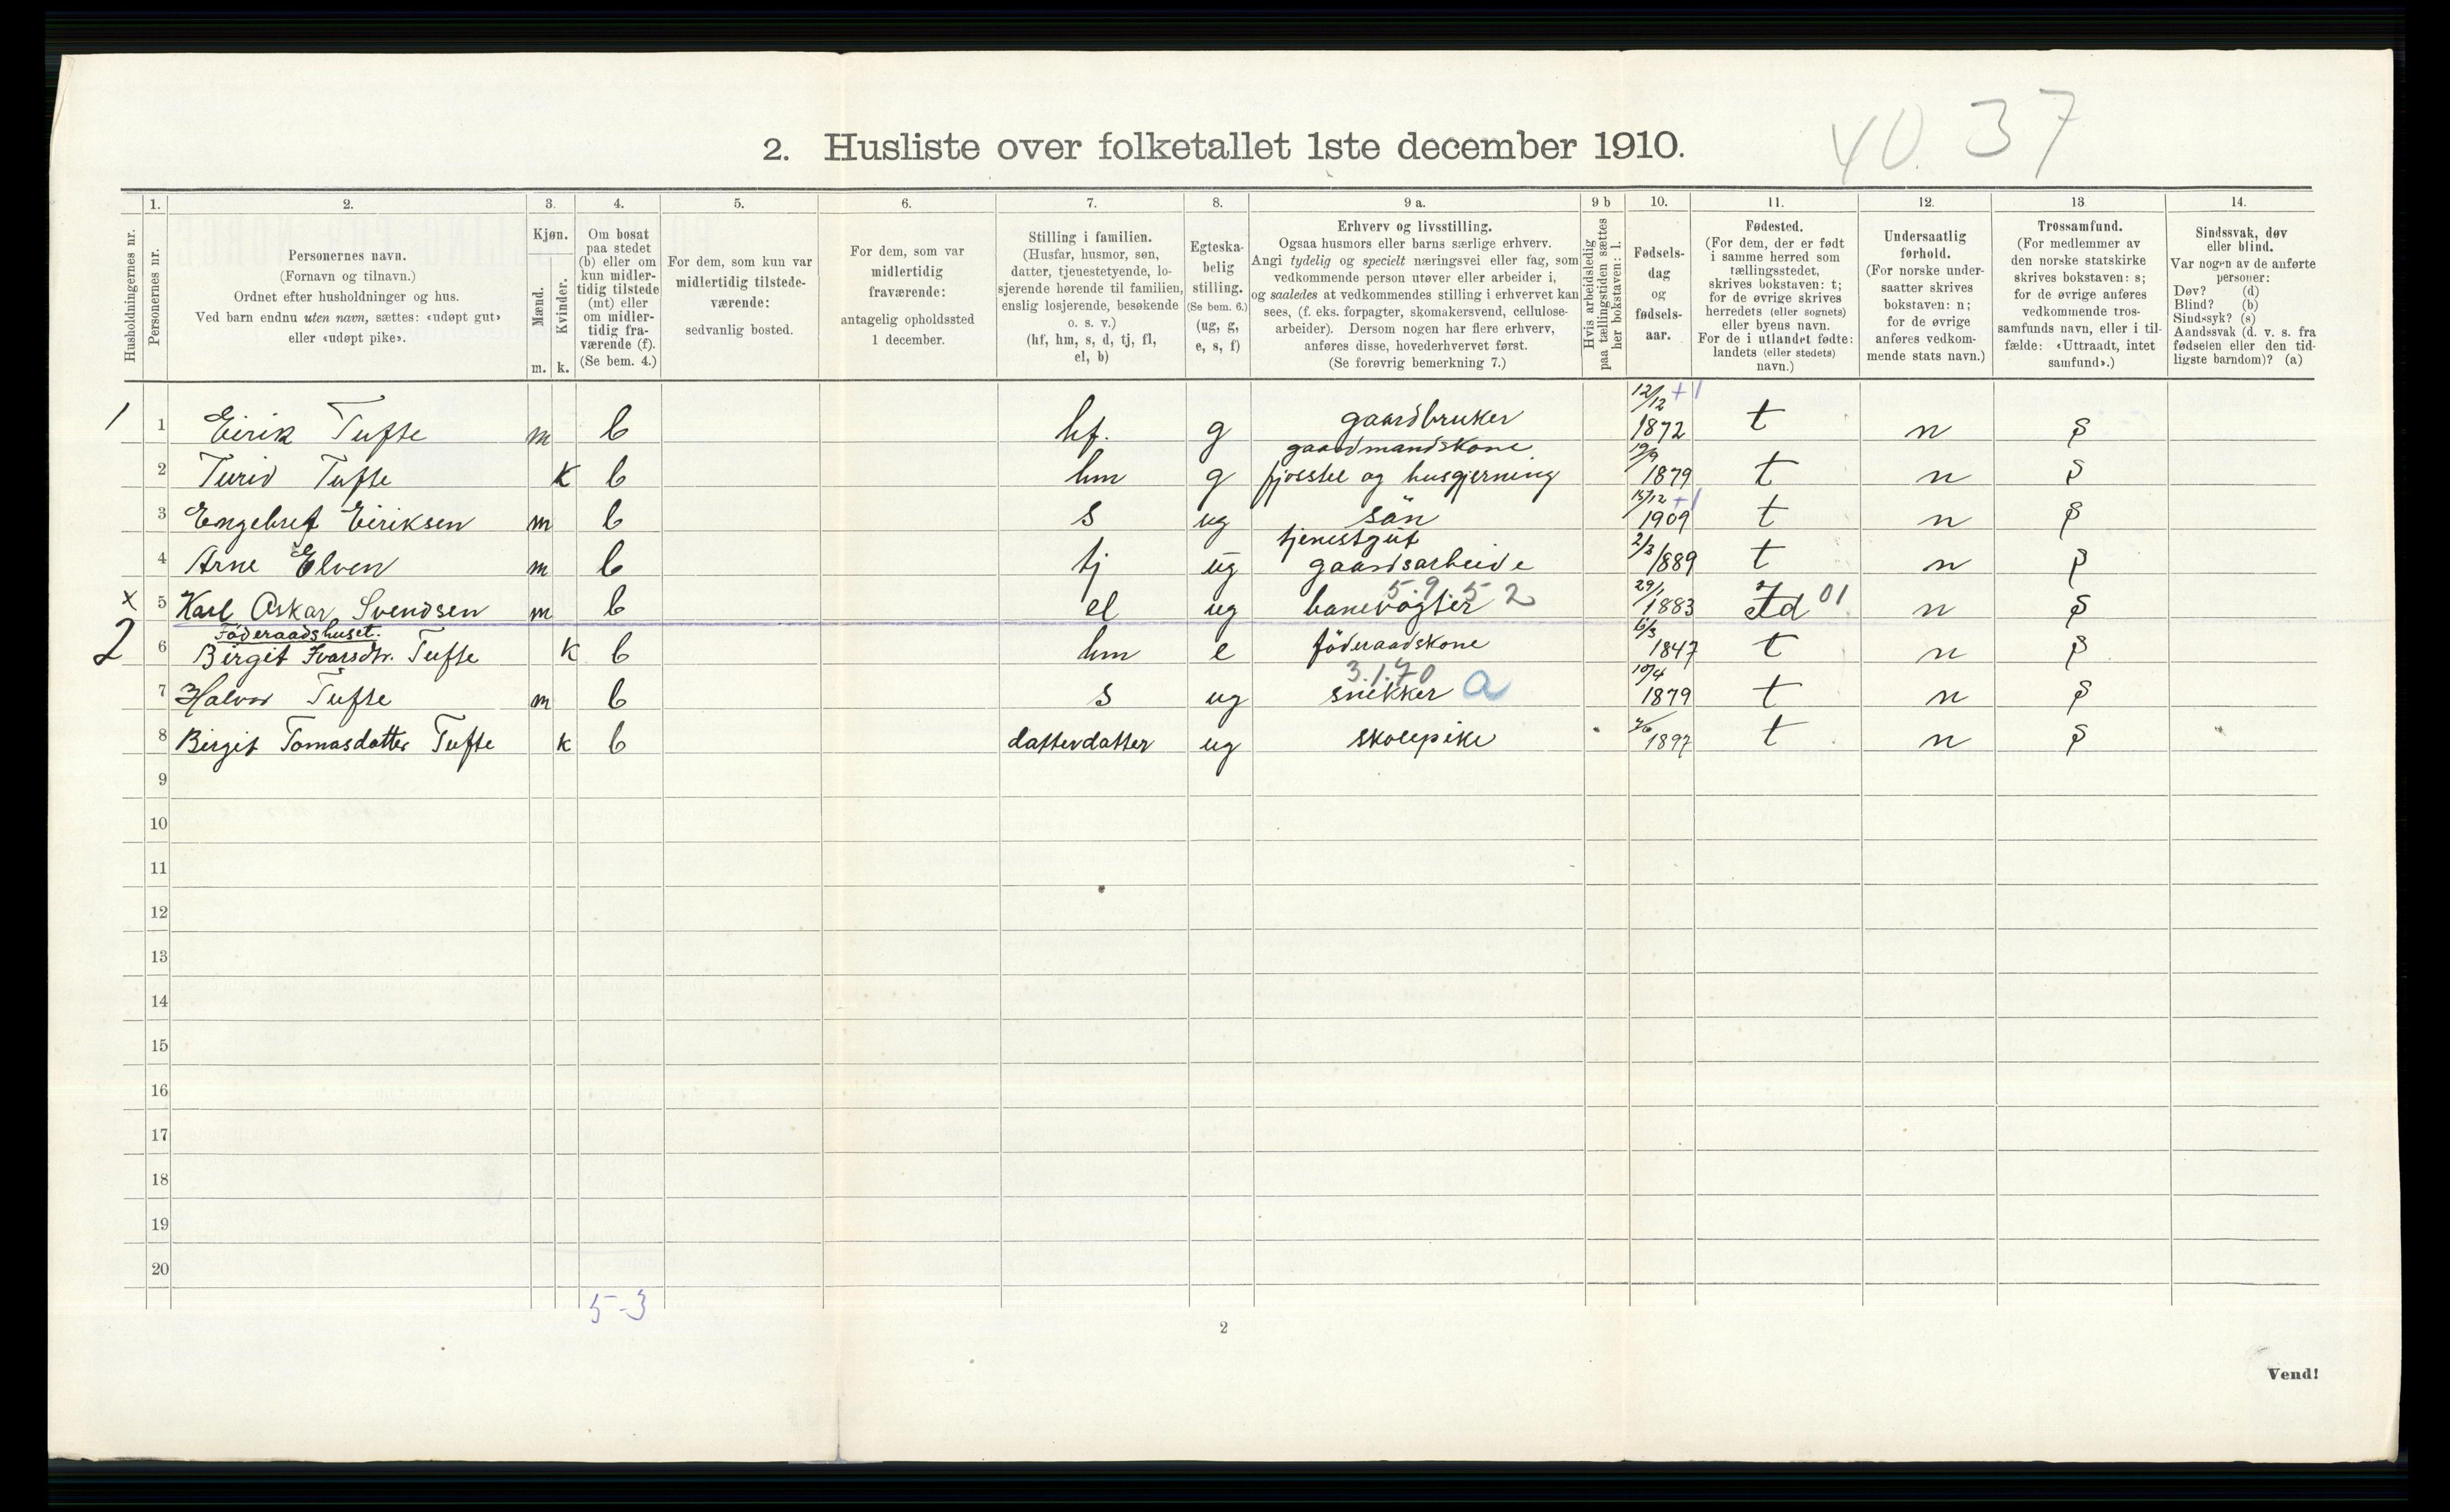 40. 37
2. Husliste over folketallet 1ste december 1910.
Husholdningernes nr.
1.
Personernes nr.
2.
Personernes navn.
(Fornavn og tilnavn.)
Ordnet efter husholdninger og hus.
Ved barn endnu uten navn, sættes: «udøpt gut»
eller «udøpt pike».
3.
Kjøn.
Mænd.
Kvinder.
m. k.
4.
Om bosat
paa stedet
(b) eller om
kun midler-
tidig tilstede
(mt) eller
om midler-
tidig fra-
værende (f).
(Se bem. 4.)
5.
For dem, som kun var
midlertidig tilstede-
værende:
sedvanlig bosted.
6.
For dem, som var
midlertidig
fraværende:
antagelig opholdssted
1 december.
7.
Stilling i familien.
(Husfar, husmor, søn,
datter, tjenestetyende, lo-
sjerende hørende til familien,
enslig losjerende, besøkende
o. s. v.)
(hf, hm, s, d, tj, fl,
el, b)
8.
Egteska-
belig
stilling.
(Se bem. 6.)
(ug, g,
e, s, f)
9 a.
Erhverv og livsstilling.
Ogsaa husmors eller barns særlige erhverv.
Angi tydelig og specielt næringsvei eller fag, som
vedkommende person utøver eller arbeider i,
og saaledes at vedkommendes stilling i erhvervet kan
sees, (f. eks. forpagter, skomakersvend, cellulose-
arbeider). Dersom nogen har flere erhverv,
anføres disse, hovederhvervet først.
(Se forøvrig bemerkning 7.)
9 b
Hvis arbeidsledig
paa tællingstiden sættes
her bokstaven: l.
10.
Fødsels-
dag
og
fødsels-
aar.
11.
Fødested.
(For dem, der er født
i samme herred som
tællingsstedet,
skrives bokstaven: t;
for de øvrige skrives
herredets (eller sognets)
eller byens navn.
For de i utlandet fødte:
landets (eller stedets)
navn.)
12.
Undersaatlig
forhold.
(For norske under-
saatter skrives
bokstaven: n;
for de øvrige
anføres vedkom-
mende stats navn.)
13
Trossamfund.
(For medlemmer av
den norske statskirke
skrives bokstaven: s;
for de øvrige anføres
vedkommende tros-
samfunds navn, eller i til-
fælde: «Uttraadt, intet
samfund».)
14.
Sindssvak, døv
eller blind.
Var nogen av de anførte
personer:
Døv? (d)
Blind? (b)
Sindssyk? (s)
Aandssvak (d. v. s. fra
fødselen eller den tid-
ligste barndom)? (a)
1 1 Eirik Tufte m b hf. g gaardbruker 12/12 +1 1872 t n s
2 Turid Tufte k b hm g gaardmandskone fjösstel og husgjerning 1879 t n s
3 Engebret Eiriksen m b s ug sön 15/12 +1 1909 t n s
4 Arne Elven m b tj ug tjenestgut gaardsarbeide 1889 t n s
x 5 Karl Oskar Svendsen m b el ug banevogter 5.9.52 29/1 1883 Id 01 n s
Föderaadshuset.
2 6 Birgit Ivarsdtr. Tufte k b hm e föderaadskone 6/3 1847 t n s
7 Halvor Tufte m b s ug snekker 3.1.70 a 10/4 1879 t n s
8 Birgit Tomasdatter Tufte k b datterdatter ug skolepike 1897 t n s
9
10
11
12
13
14
15
16
17
18
19
20
5-3
2
Vend!